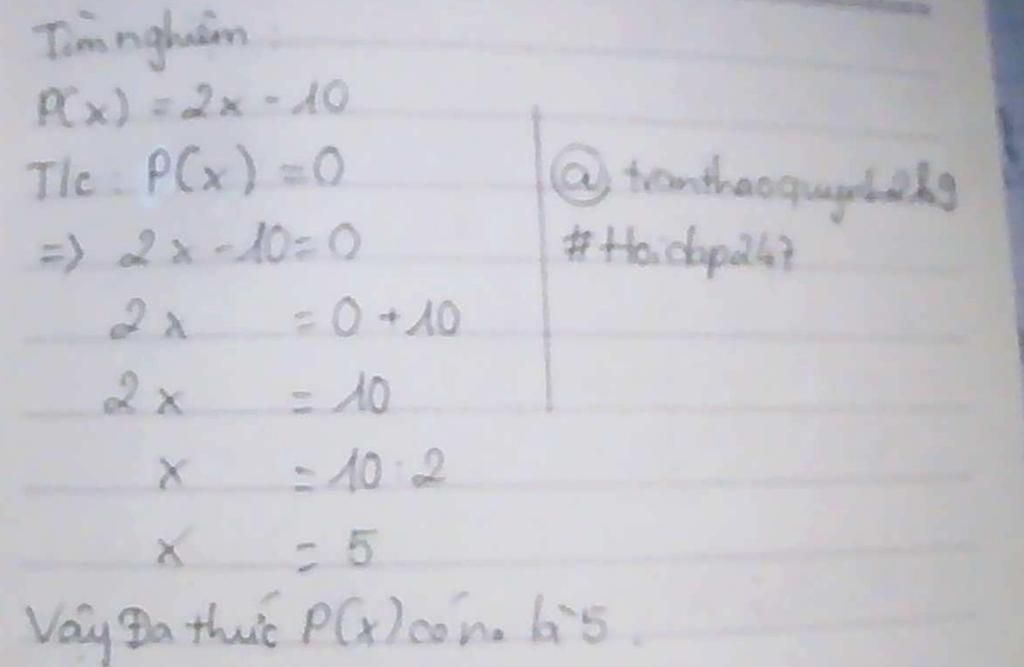 Tìm nghiệm
P(x) = 2x - 10
T/c : P(x) = 0
=> 2x - 10 = 0
2x = 0 + 10
2x = 10
x = 10 : 2
x = 5
Vậy Đa thức P(x) có n. là 5.
@
#Hoidap247